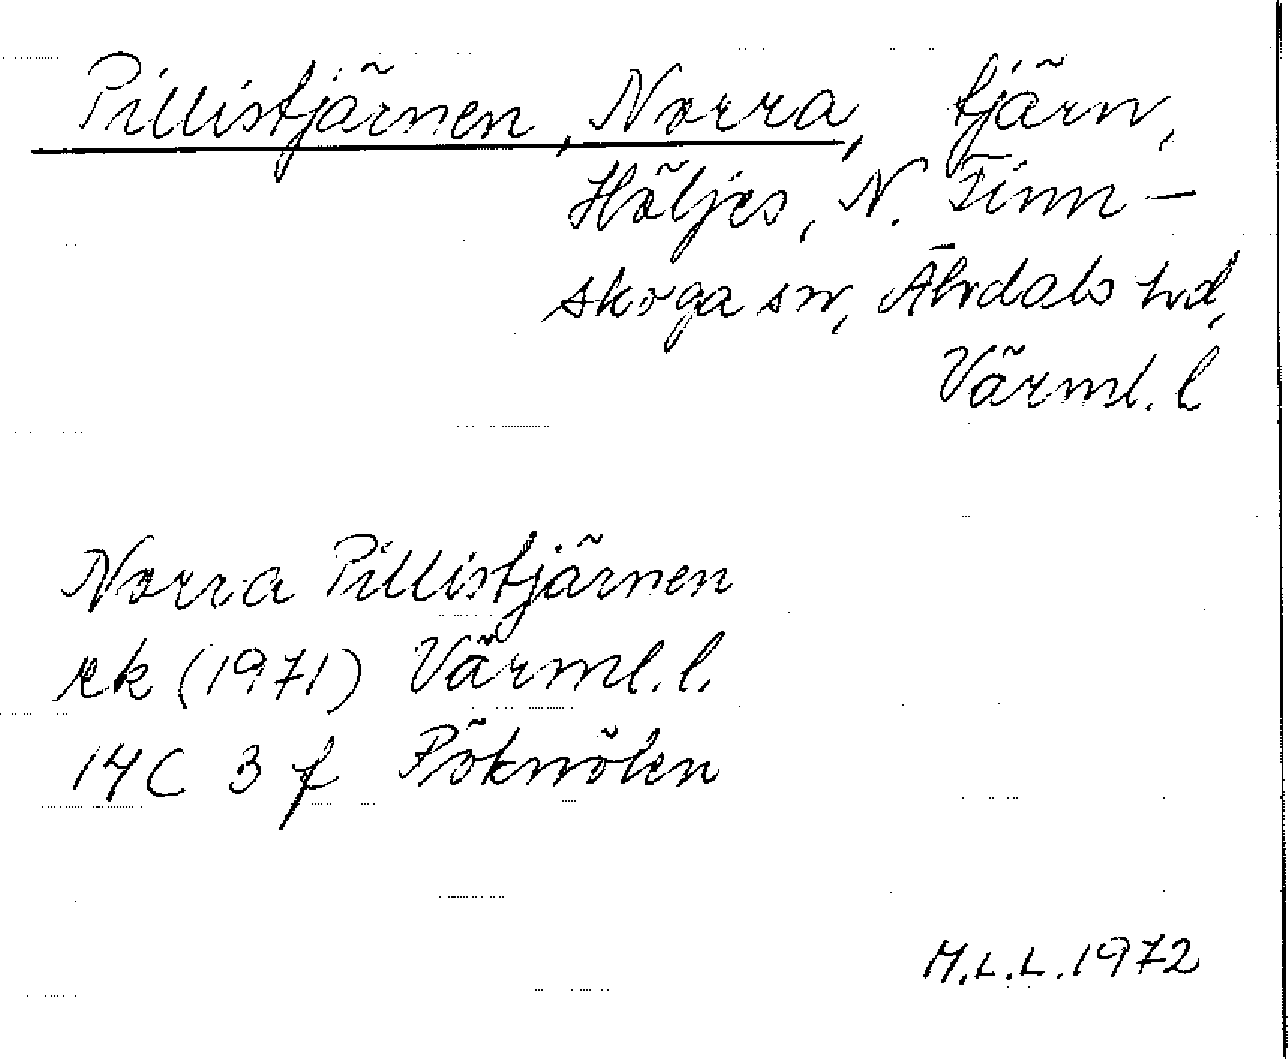 Pillistjärnen, Norra, tjärn,
Höljes, N. Finn-
skoga sn, Älvdals hd,
Värml. l
Norra Pillistjärnen
rk (1971) Värml. l.
14C 3 f
M.L.L. 1972